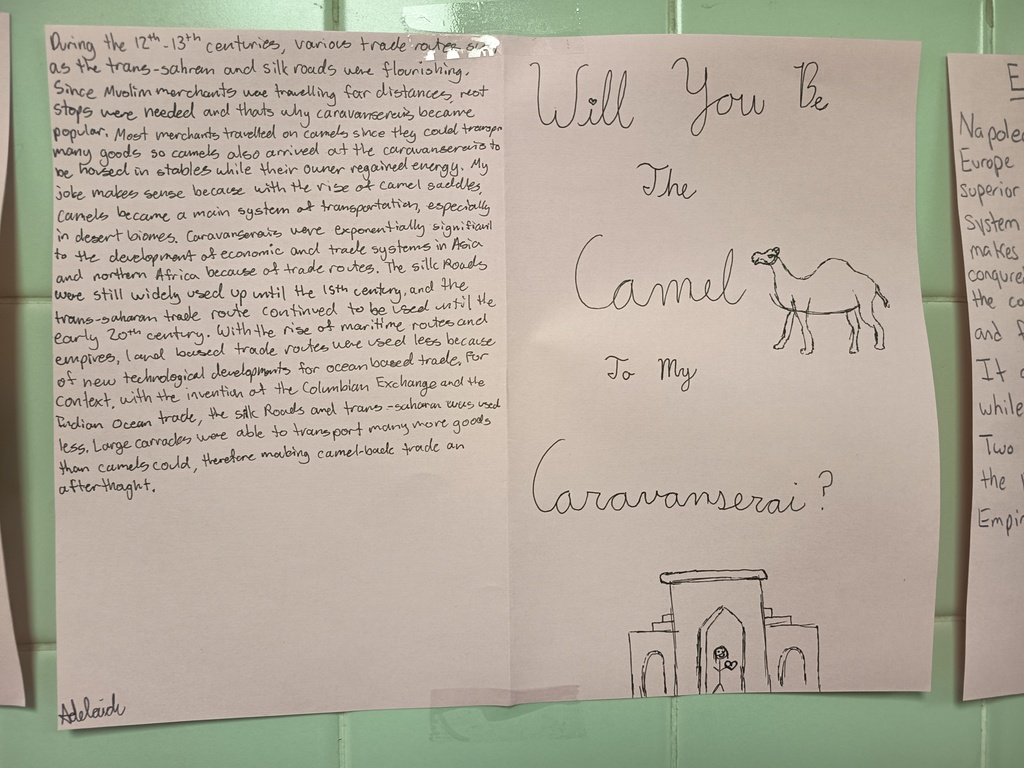 During the 12th-13th centuries, various trade routes
as the trans-sahran and silk roads were flourishing.
Since Muslim merchants were travelling far distances, rest
stops were needed and thats why caravanserais became
popular. Most merchants travelled on camels since they could
many goods so camels also arrived at the caravanserais to
be housed in stables while their owner regained energy. My
joke makes sense because with the rise of camel saddles,
camels became a main system of transportation, especially
in desert biomes. Caravanserais were exponentially significant
to the development of economic and trade systems in Asia
and northern Africa because of trade routes. The silk Roads
were still widely used up until the 15th century, and the
trans-saharan trade route continued to be used until the
early 20th century. With the rise of maritime routes and
empires, land based trade routes were used less because
of new technological developments for ocean based trade. For
context, with the invention of the Columbian Exchange and the
Indian Ocean trade, the silk Roads and trans-saharan was used
less. Large carracks were able to transport many more goods
than camels could, therefore making camel-back trade an
afterthaght.
Adelaide
Will You Be
The
Camel
To My
Caravanserai?
Europe
superior
system
makes
the
and
It
while
Two
the